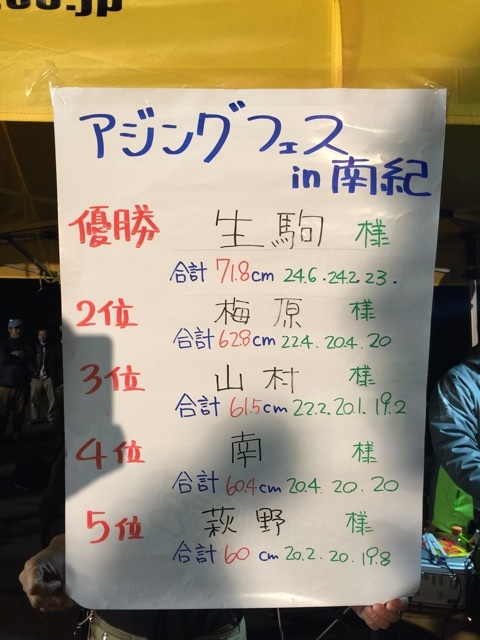 .jp
アジングフェス
in 南紀
優勝 生駒 様
合計 71.8cm 24.6.24.2.23.
2位 梅原 様
合計 62.8cm 22.4.20.4.20
3位 山村 様
合計 61.5cm 22.2.20.1.19.2
4位 南 様
合計 60.4cm 20.4.20.20
5位 萩野 様
合計 60 cm 20.2.20.19.8